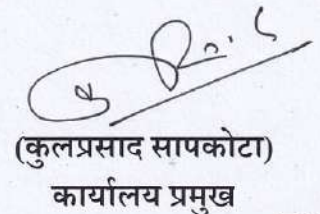 (कुलप्रसाद सापकोटा)
कार्यालय प्रमुख